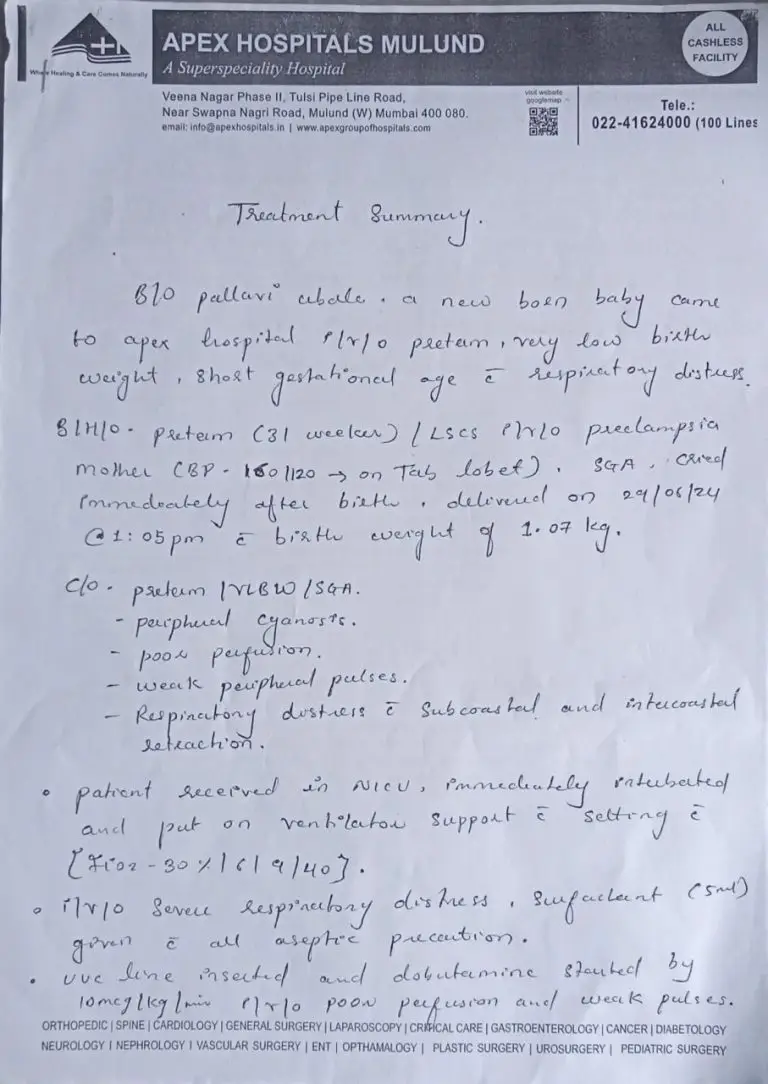 Where Healing & Care Comes Naturally
APEX HOSPITALS MULUND
A Superspeciality Hospital
ALL
CASHLESS
FACILITY
Veena Nagar Phase II, Tulsi Pipe Line Road,
Near Swapna Nagri Road, Mulund (W) Mumbai 400 080.
email: info@apexhospitals.in | www.apexgroupofhospitals.com
visit website
googlemap
Tele.:
022-41624000 (100 Lines
Treatment Summary.
B/O pallavi ubale. a new born baby came
to apex hospital i/v/o preterm, very low birth
weight, short gestational age c̄ respiratory distress.
B/H/O - preterm (31 weeker) / LSCS i/v/o preclampsia
mother (BP - 160/120 → on Tab lobet). SGA, cried
immediately after birth, delivered on 29/06/24
@ 1:05pm c̄ birth weight of 1.07 kg.
C/O - preterm / VLBW / SGA.
- peripheral cyanosis.
- poor perfusion.
- weak peripheral pulses.
- Respiratory distress c̄ subcoastal and intercoastal
retraction.
• patient received in NICU, immediately intubated
and put on ventilator support c̄ setting c̄
[Fio2 - 30 % / 6 / 9 / 40].
• i/v/o severe respiratory distress, surfactant (5ml)
given c̄ all aseptic precaution.
• UVC line inserted and dobutamine started by
10mcg/kg/min i/v/o poor perfusion and weak pulses.
ORTHOPEDIC | SPINE | CARDIOLOGY | GENERAL SURGERY | LAPAROSCOPY | CRITICAL CARE | GASTROENTEROLOGY | CANCER | DIABETOLOGY
NEUROLOGY I NEPHROLOGY I VASCULAR SURGERY | ENT | OPTHAMALOGY | PLASTIC SURGERY | UROSURGERY | PEDIATRIC SURGERY